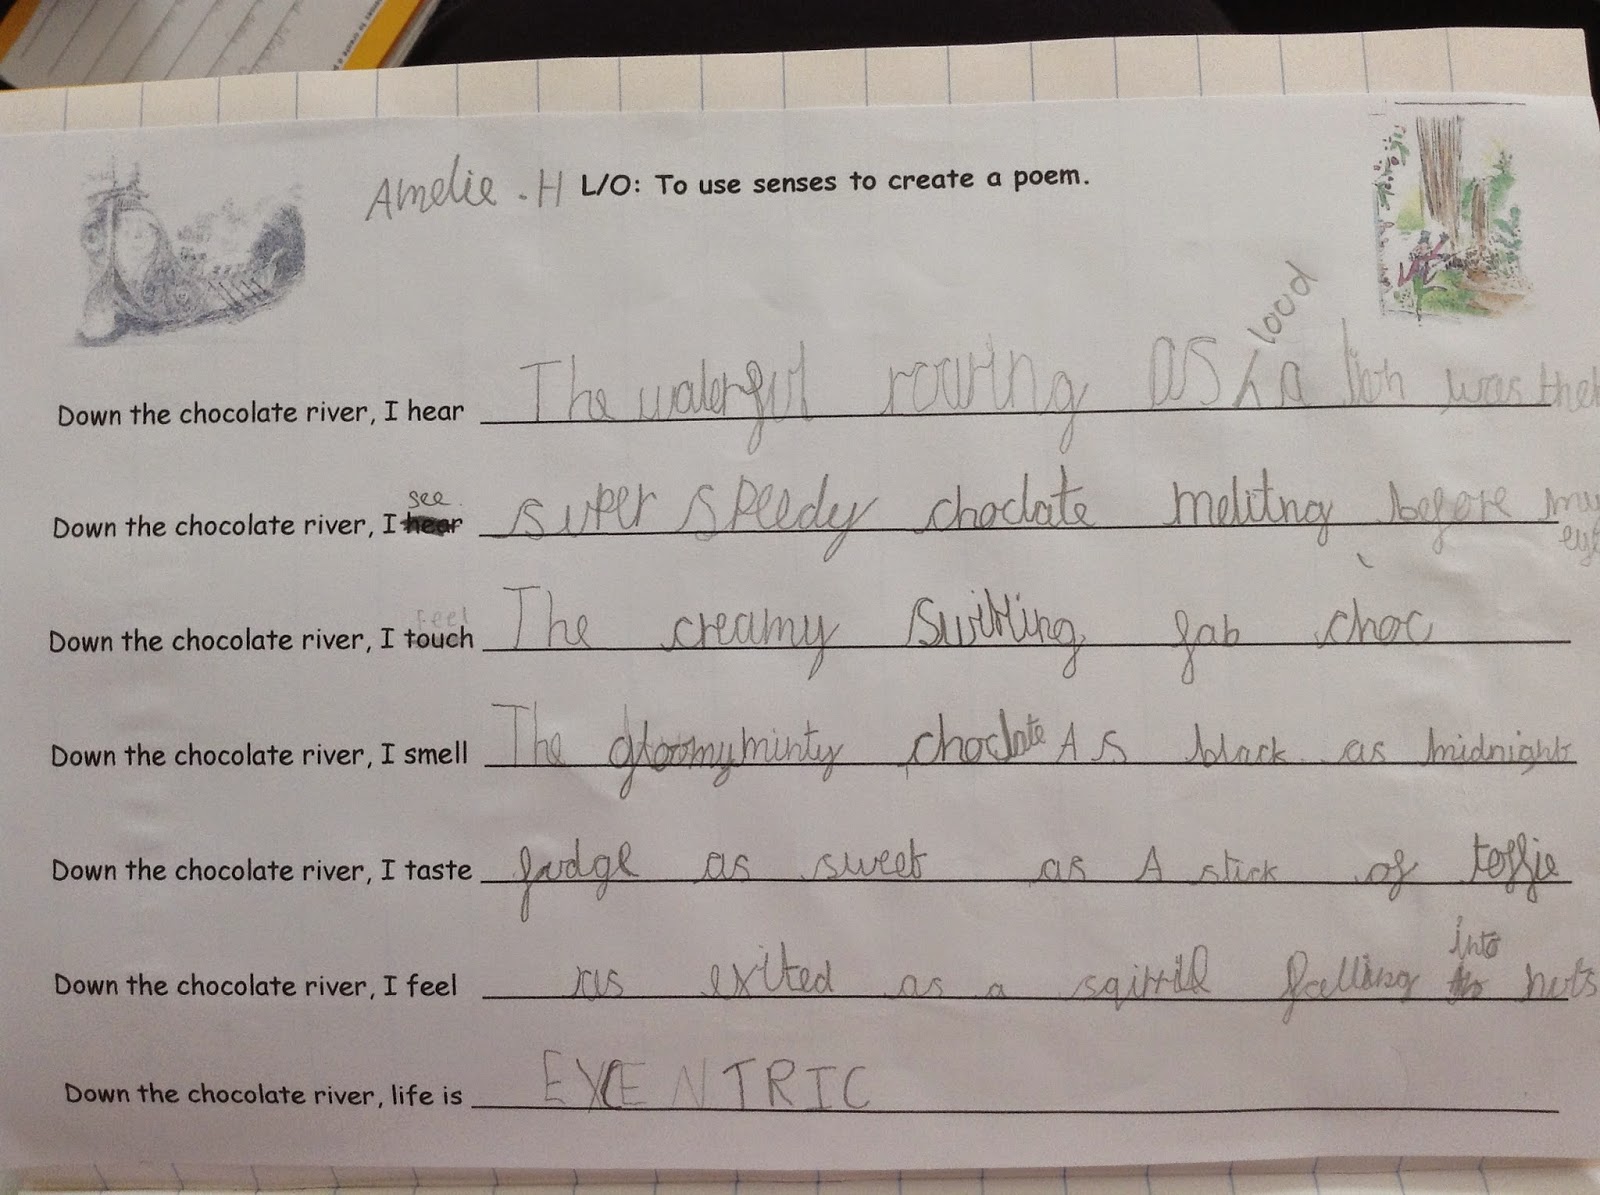 Amelie . H L/O: To use senses to create a poem.
loud
Down the chocolate river, I hear The waterful roaring as a lion was ther
see
Down the chocolate river, I hear super speedy choclate melitng before my
Feel
Down the chocolate river, I touch The creamy swirling fab choc
Down the chocolate river, I smell The gloomy minty choclate As black as midnight
Down the chocolate river, I taste fudge as sweet as A stick of toffie
into
Down the chocolate river, I feel as exited as a squirril falling nuts
Down the chocolate river, life is EXCENTRIC